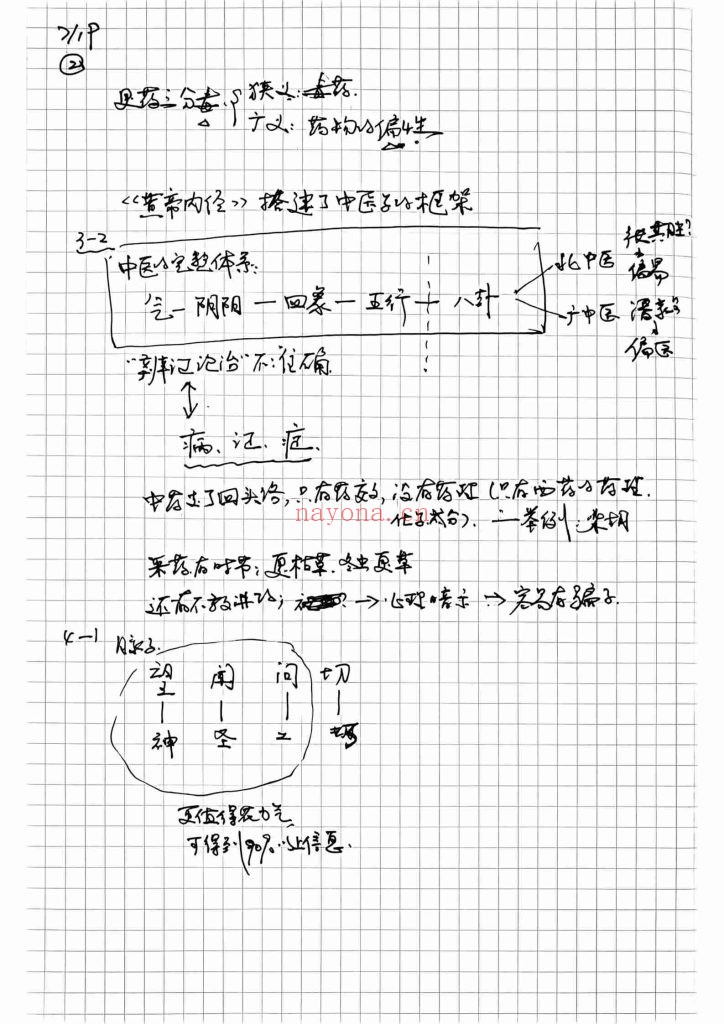 7/19
②
是药三分毒
狭义：毒药.
广义：药物的偏性
《黄帝内径》搭建了中医学的框架
3-2
中医的完整体系：
气—阴阳—四象—五行—八卦
北中医
偏易
广中医
偏医
"辨证论治"不准确
病、证、症.
中药走了回头路，只有药效，没有药理（只有西药的药理.
化学成分）. 举例：柴胡
nayona.cn
采药有时节；夏枯草.冬虫夏草
→心理暗示→容易有骗子.
4-1
脉学.
望 闻 问 切
神 圣 工 巧
更值得花力气
可得到90%以上信息.